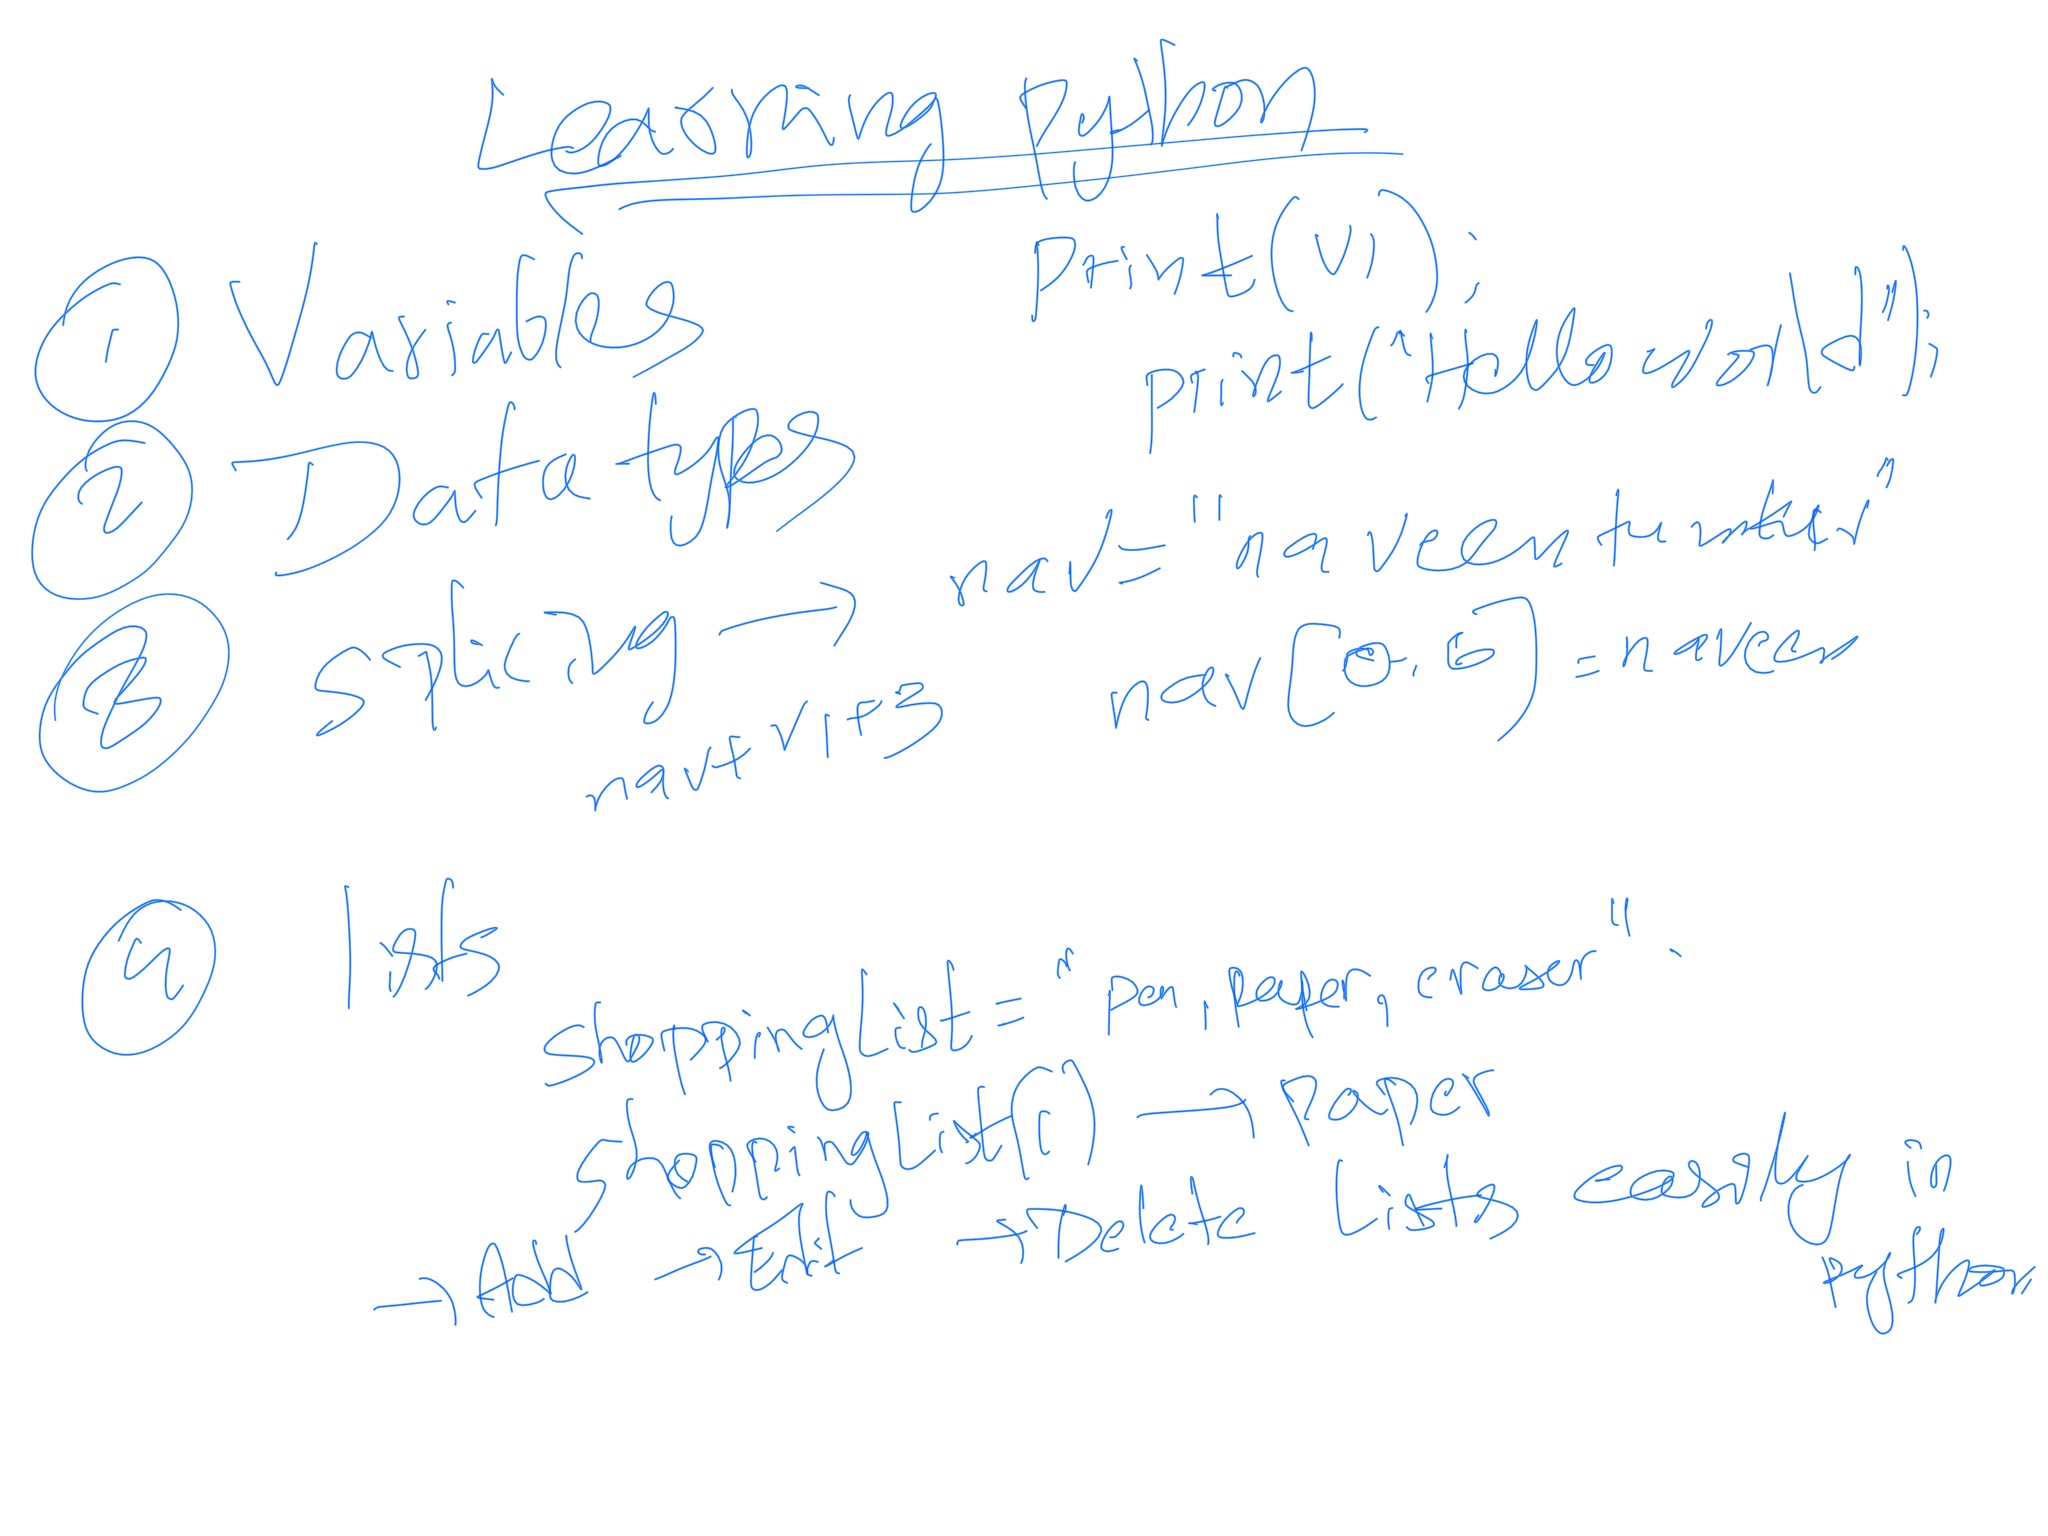 Learning Python
① Variables
print(v1);
print("Hello world");
② Data types
③ Splicing → nav = "naveen
nav[0.6] = naveen
nav+v1+3
④ lists
shoppingList = "pen, paper, eraser".
shoppingList(1) → paper
→ Add → Edit → Delete Lists easily in
python